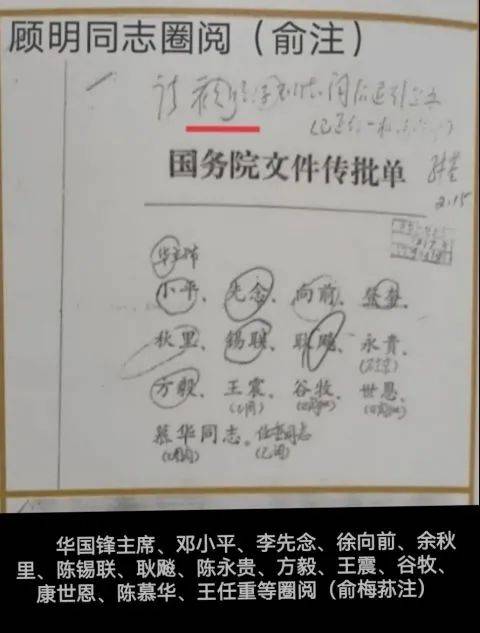 顾明同志圈阅（俞注）
请顾明同志阅后退
国务院文件传批单
2.15
华主席
小平、先念、向前、登奎、
秋里、锡联、耿飚、永贵、
方毅、王震、谷牧、世恩、
慕华同志。任重同志
(已阅)
华国锋主席、邓小平、李先念、徐向前、余秋
里、陈锡联、耿飚、陈永贵、方毅、王震、谷牧、
康世恩、陈慕华、王任重等圈阅（俞梅荪注）